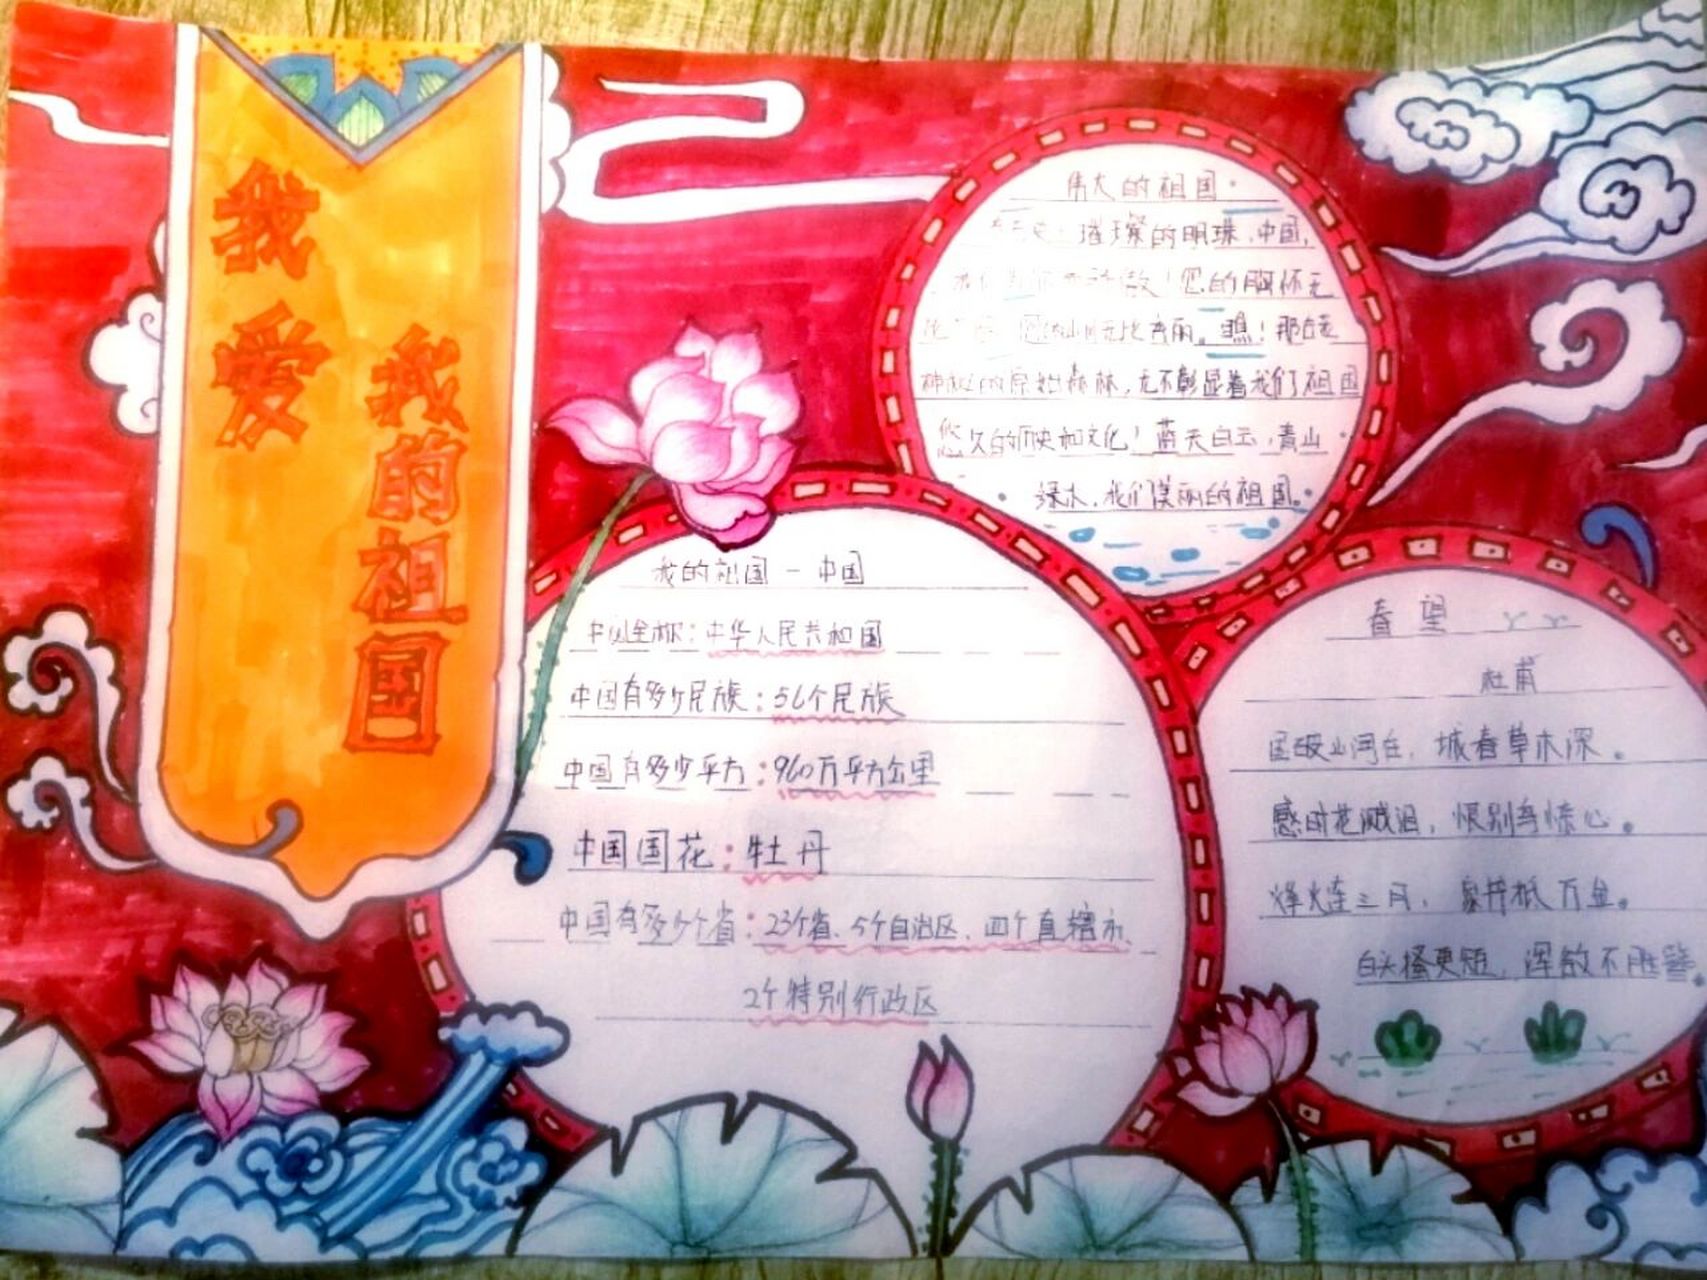 我爱
我的祖国
伟大的祖国
璀璨的明珠,中国,
!您的胸怀无
山川无比秀丽。瞧!那
神秘的原始森林,无不彰显着我们祖国
悠久的历史和文化!蓝天白云,青山
绿水,我们美丽的祖国。
我的祖国-中国
中国全称:中华人民共和国
中国有多少民族:56个民族
中国有多少平方:960万平方公里
中国国花:牡丹
中国有多少个省:23个省、5个自治区、四个直辖市、
2个特别行政区
春望
杜甫
国破山河在,城春草木深。
感时花溅泪,恨别鸟惊心。
烽火连三月,家书抵万金。
白头搔更短,浑欲不胜簪。